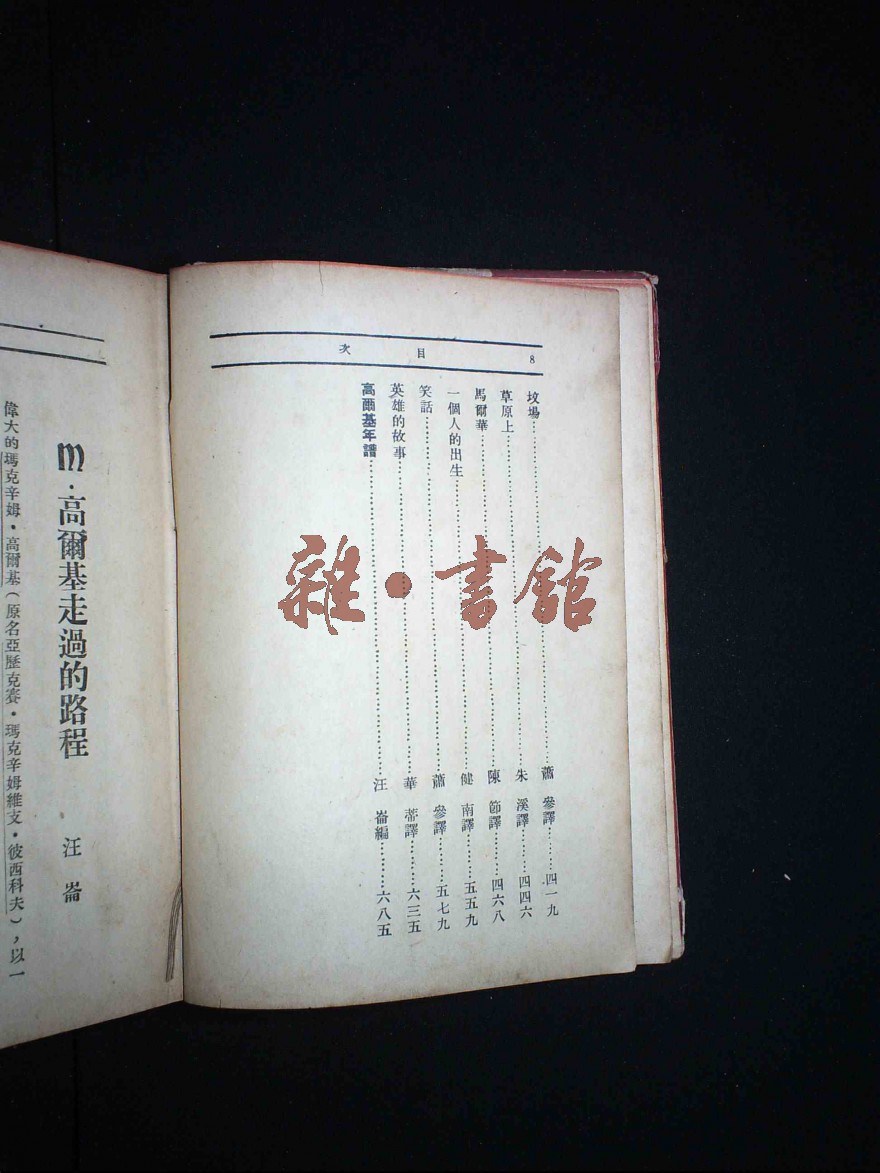 8　目　次
坟場……蕭　參譯……四一九
草原上……朱　溪譯……四四六
馬爾華……陳　節譯……四六八
一個人的出生……健　南譯……五五九
笑話……蕭　參譯……五七九
英雄的故事……華　蒂譯……六三五
高爾基年譜……汪　崙編……六八五
雜·書館
M·高爾基走過的路程
汪　崙
偉大的瑪克辛姆·高爾基（原名亞歷克賽·瑪克辛姆維支·彼西科夫），以一